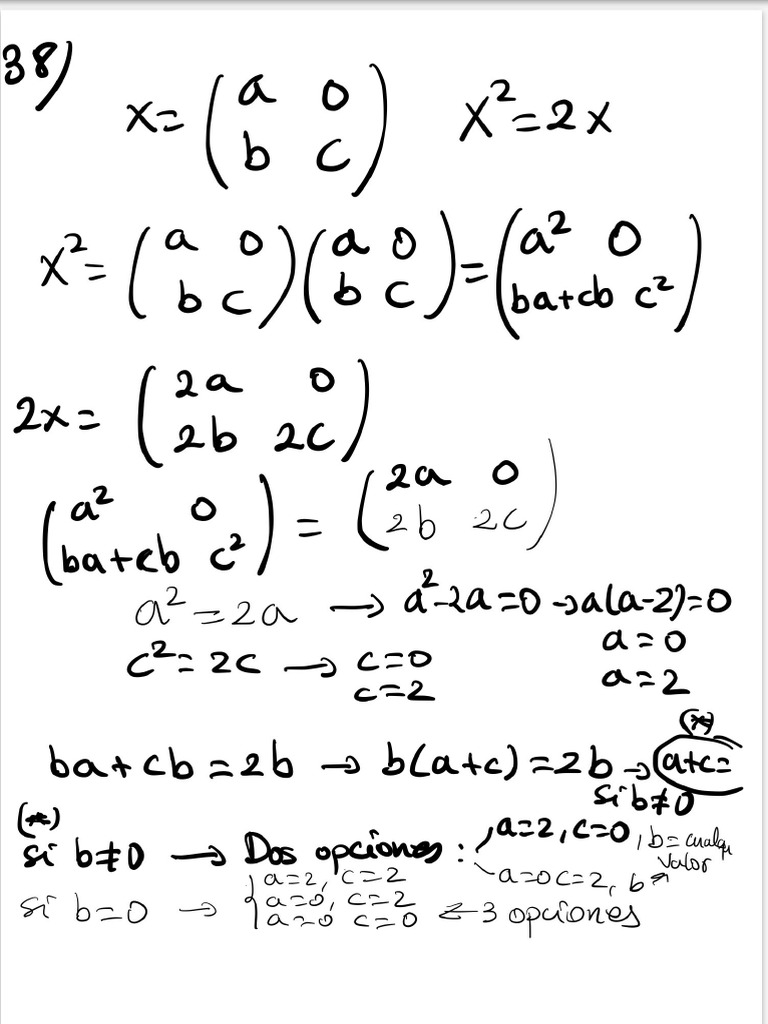 38)
x = ( a 0 ; b c ) X² = 2x
X² = ( a 0 ; b c ) ( a 0 ; b c ) = ( a² 0 ; ba+cb c² )
2x = ( 2a 0 ; 2b 2c )
( a² 0 ; ba+cb c² ) = ( 2a 0 ; 2b 2c )
a² = 2a → a²-2a=0 → a(a-2)=0
a=0
a=2
c² = 2c → c=0
c=2
ba+cb = 2b → b(a+c) = 2b → a+c=
(*)
si b≠0
(*)
si b≠0 → Dos opciones: a=2, c=0, b= cualqu
valor
a=0 c=2, b
si b=0 → { a=2, c=2
a=0, c=2
a=0 c=0 ← 3 opciones